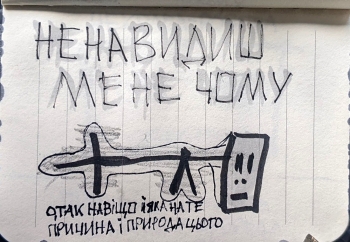 НЕНАВИДИШ
МЕНЕ ЧОМУ
ОТАК НАВІЩО І ЯКА НА ТЕ
ПРИЧИНА І ПРИРОДА ЦЬОГО